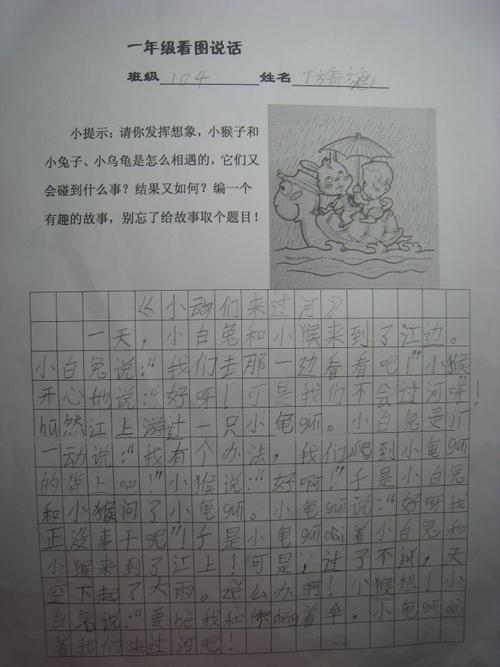 一年级看图说话
班级 104 姓名
小提示：请你发挥想象，小猴子和
小兔子、小乌龟是怎么相遇的，它们又
会碰到什么事？结果又如何？编一个
有趣的故事，别忘了给故事取个题目！
《小动们来过河》
一天，小白兔和小猴来到了江边。
小白兔说：“我们去那一边看看吧！”小猴
开心地说：“好呀！可是我们不会过河呀！
然江上游过一只小龟guī。小白兔
一动说：“我有个办法，我们爬到小龟guī
的背上吧！”小猴说：“好啊！”于是小白兔
和小猴问了小龟guī。小龟guī说：“好呀我
正没事干呢”！于是小龟guīdài着小白兔和
小猴来到了江上！可是，过了不，天
空下起了大雨。zě么办啊！小猴想！小
白兔说：“要bě我和你着伞，小龟guīdài
着我们来过河吧！